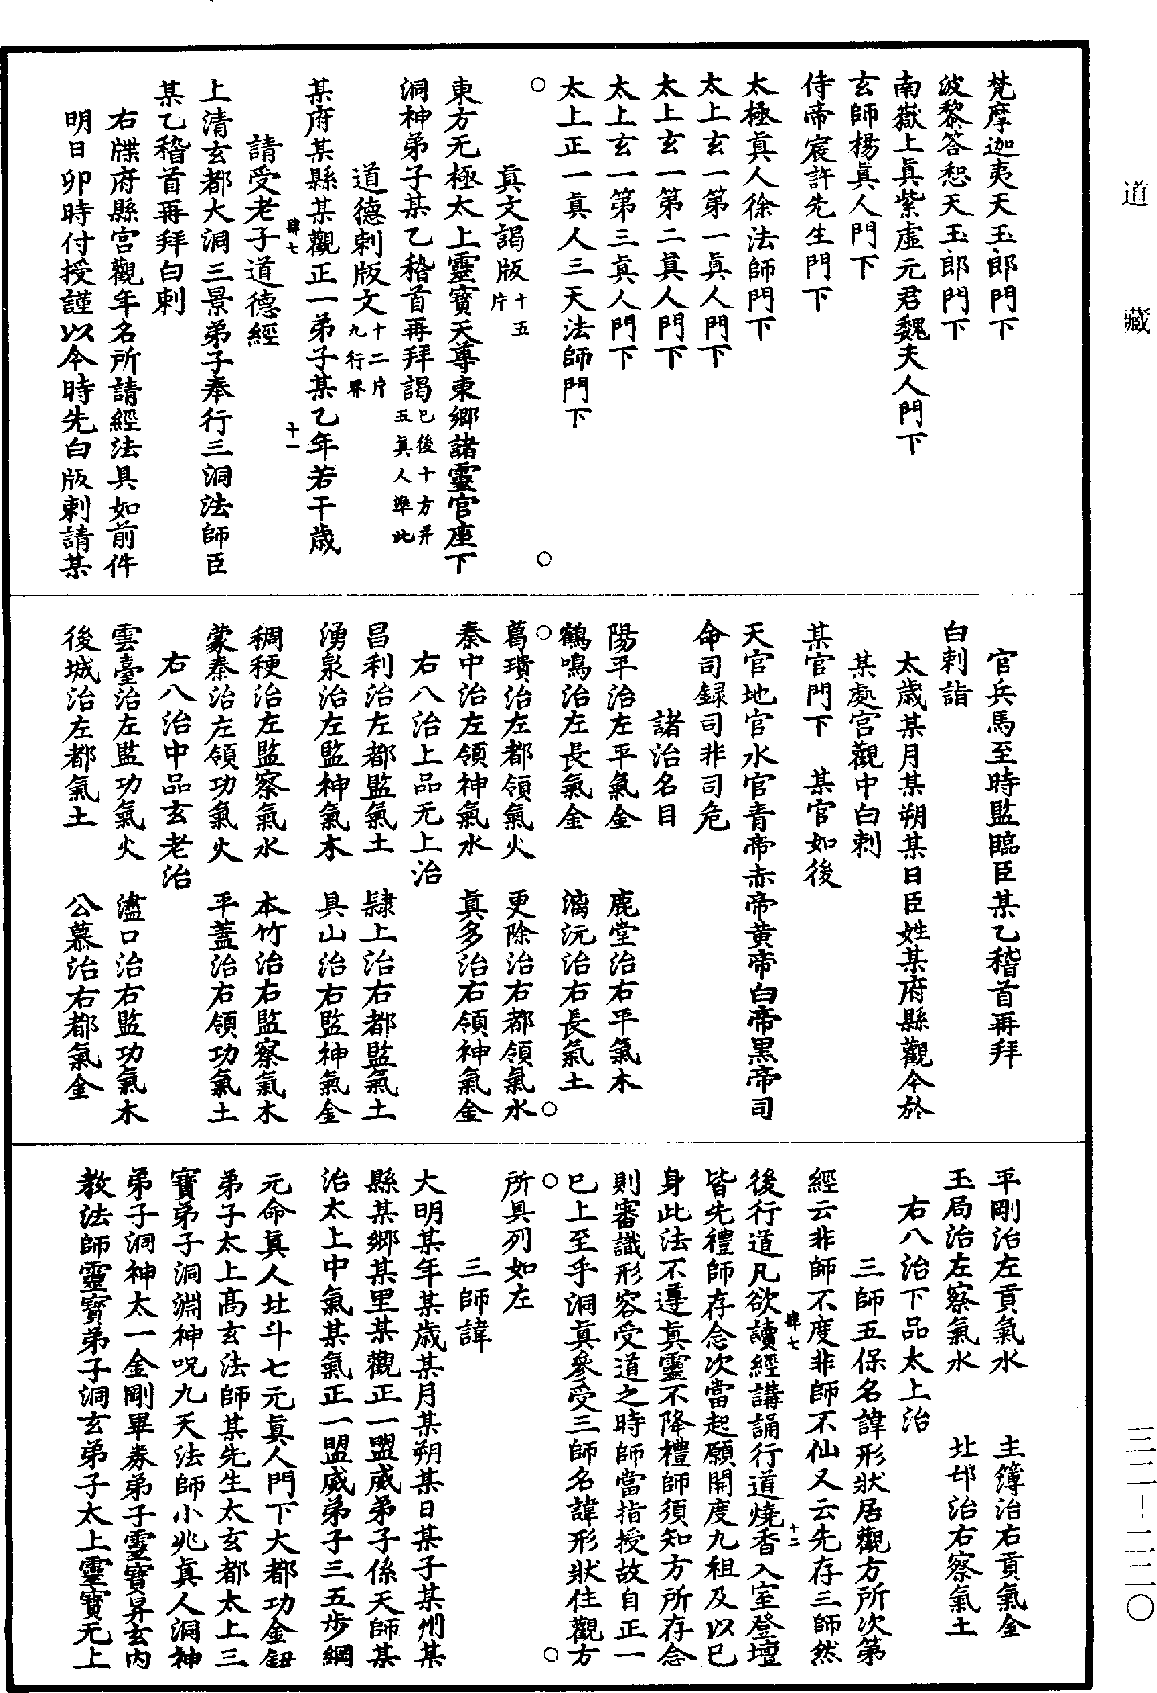 道藏
三二-二二〇
梵摩迦夷天玉郎門下
波黎答恕天玉郎門下
南嶽上真紫虛元君魏夫人門下
玄師楊真人門下
侍帝宸許先生門下
太極真人徐法師門下
太上玄一第一真人門下
太上玄一第二真人門下
太上玄一第三真人門下
太上正一真人三天法師門下
○ ○
真文謁版十五片
東方无極太上靈寶天尊東鄉諸靈官座下
洞神弟子某乙稽首再拜謁已後十方并五真人準此
道德剌版文十二片九行界
某府某縣某觀正一弟子某乙年若干歲
肆七 十一
請受老子道德經
上清玄都大洞三景弟子奉行三洞法師臣
某乙稽首再拜白剌
右牒府縣宮觀年名所請經法具如前件
明日卯時付授謹以今時先白版剌請某
官兵馬至時監臨臣某乙稽首再拜
白剌詣
太歲某月某朔某日臣姓某府縣觀今於
某處宮觀中白剌
某官門下 某官如後
天官地官水官青帝赤帝黃帝白帝黑帝司
命司録司非司危
諸治名目
陽平治左平氣金 鹿堂治右平氣木
鶴鳴治左長氣金 漓沅治右長氣土
○ ○
葛璝治左都領氣火 更除治右都領氣水
秦中治左領神氣水 真多治右領神氣金
右八治上品无上治
昌利治左都監氣土 隸上治右都監氣土
湧泉治左監神氣木 具山治右監神氣金
稠稉治左監察氣水 本竹治右監察氣木
蒙秦治左領功氣火 平蓋治右領功氣土
右八治中品玄老治
雲臺治左監功氣火 濜口治右監功氣木
後城治左都氣土 公慕治右都氣金
平剛治左貢氣水 主簿治右貢氣金
玉局治左察氣水 北邙治右察氣土
右八治下品太上治
三師五保名諱形狀居觀方所次第
經云非師不度非師不仙又云先存三師然
肆七 十二
後行道凡欲讀經講誦行道燒香入室登壇
皆先禮師存念次當起願開度九祖及以已
身此法不遵真靈不降禮師須知方所存念
則審識形容受道之時師當指授故自正一
已上至乎洞真參受三師名諱形狀住觀方
○ ○
所具列如左
三師諱
大明某年某歲某月某朔某日某子某州某
縣某鄉某里某觀正一盟威弟子係天師某
治太上中氣某氣正一盟威弟子三五步綱
元命真人北斗七元真人門下大都功金鈕
弟子太上高玄法師某先生太玄都太上三
寶弟子洞淵神呪九天法師小兆真人洞神
弟子洞神太一金剛畢券弟子靈寶昇玄內
教法師靈寶弟子洞玄弟子太上靈寶无上